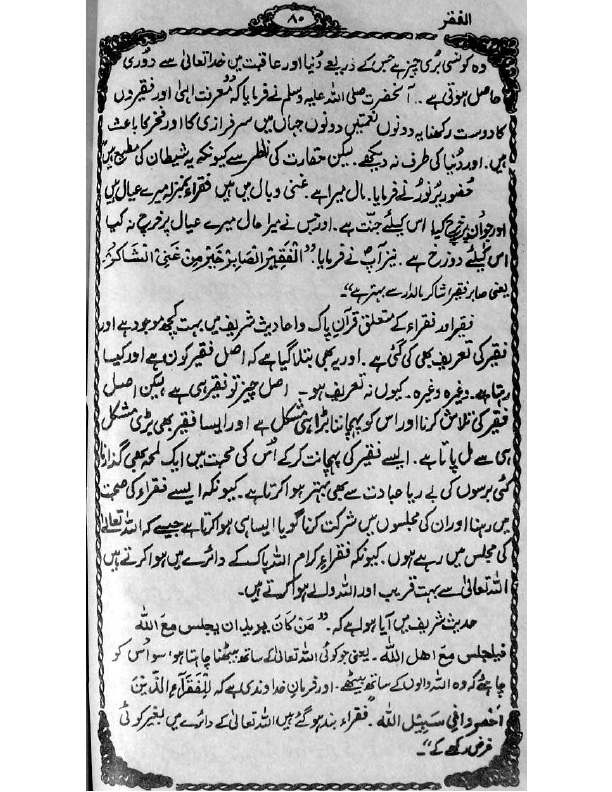 الفقر
۸۰
وہ کونسی بُری چیز ہے جس کے ذریعے دُنیا اور عاقبت میں خدا تعالیٰ سے دُوری
حاصل ہوتی ہے۔ آنحضرت صلی اللہ علیہ وسلم نے فرمایا کہ مُعرفت الٰہی اور فقیروں
کا دوست رکھنا یہ دونوں نعمتیں دونوں جہاں میں سرفرازی کا اور فخر کا باعث
ہیں۔ اور دُنیا کی طرف نہ دیکھے۔ لیکن حقارت کی نظر سے کیونکہ یہ شیطان کی مطیع ہیں
حضور پُر نُورؐ نے فرمایا۔ مال میرا ہے غنی وبال میں ہیں فقراء بمنزلہ میرے عیال ہیں
اور جو اُن پر خرچ کیا اس کیلئے جنّت ہے۔ اور جس نے میرا مال میرے عیال پر خرچ نہ کیا
اس کیلئے دوزخ ہے۔ نیز آپؐ نے فرمایا "اَلْفَقِیْرُ الصَّابِرُ خَیْرٌ مِنْ غَنِیِّ الشَّاکِرُ۔
یعنی صابر فقیر، شاکر مالدار سے بہتر ہے"۔
فقیر اور فقراء کے متعلق قرآنِ پاک و احادیث شریف میں بہت کچھ موجود ہے اور
فقیر کی تعریف بھی کی گئی ہے۔ اور یہ بھی بتلایا گیا ہے کہ اصل فقیر کون ہے اور کیسا
رہتا ہے۔ وغیرہ وغیرہ۔ کیوں نہ تعریف ہو۔ اصل چیز تو فقیر ہی ہے لیکن اصل
فقیر کی تلاش کرنا اور اس کو پہچاننا بڑا ہی مشکل ہے اور ایسا فقیر بھی بڑی مشکل
ہی سے مل پاتا ہے۔ ایسے فقیر کی پہچانت کرکے اُس کی محبت میں ایک لمحہ بھی گذارنا
کئی برسوں کی بے ریا عبادت سے بھی بہتر ہوا کرتا ہے۔ کیونکہ ایسے فقراء کی صحبت
میں رہنا اور ان کی مجلسوں میں شرکت کرنا گویا ایسا ہی ہوا کرتا ہے جیسے کہ اللہ تعالیٰ
کی مجلس میں رہے ہوں۔ کیونکہ فقراءِ کرام اللہ پاک کے دائرے میں ہوا کرتے ہیں
اللہ تعالیٰ سے بہت قریب اور اللہ والے ہوا کرتے ہیں۔
حدیث شریف میں آیا ہوا ہے کہ۔ "مَن کَانَ یریدان یجلس معَ اللہ
فیلجلس معَ اھل اللہ۔ یعنی جو کوئی اللہ تعالیٰ کے ساتھ بیٹھنا چاہتا ہو، سو اُس کو
چاہئے کہ وہ اللہ والوں کے ساتھ بیٹھے۔ اور فرمانِ خداوندی ہے کہ لِلْفُقَرَآءِ الَّذِیْنَ
اُحْصِرُوا فِی سَبِیْلِ اللہ۔ فقراء بند ہو گئے ہیں اللہ تعالیٰ کے دائرے میں بغیر کوئی
غرض رکھے کے"۔